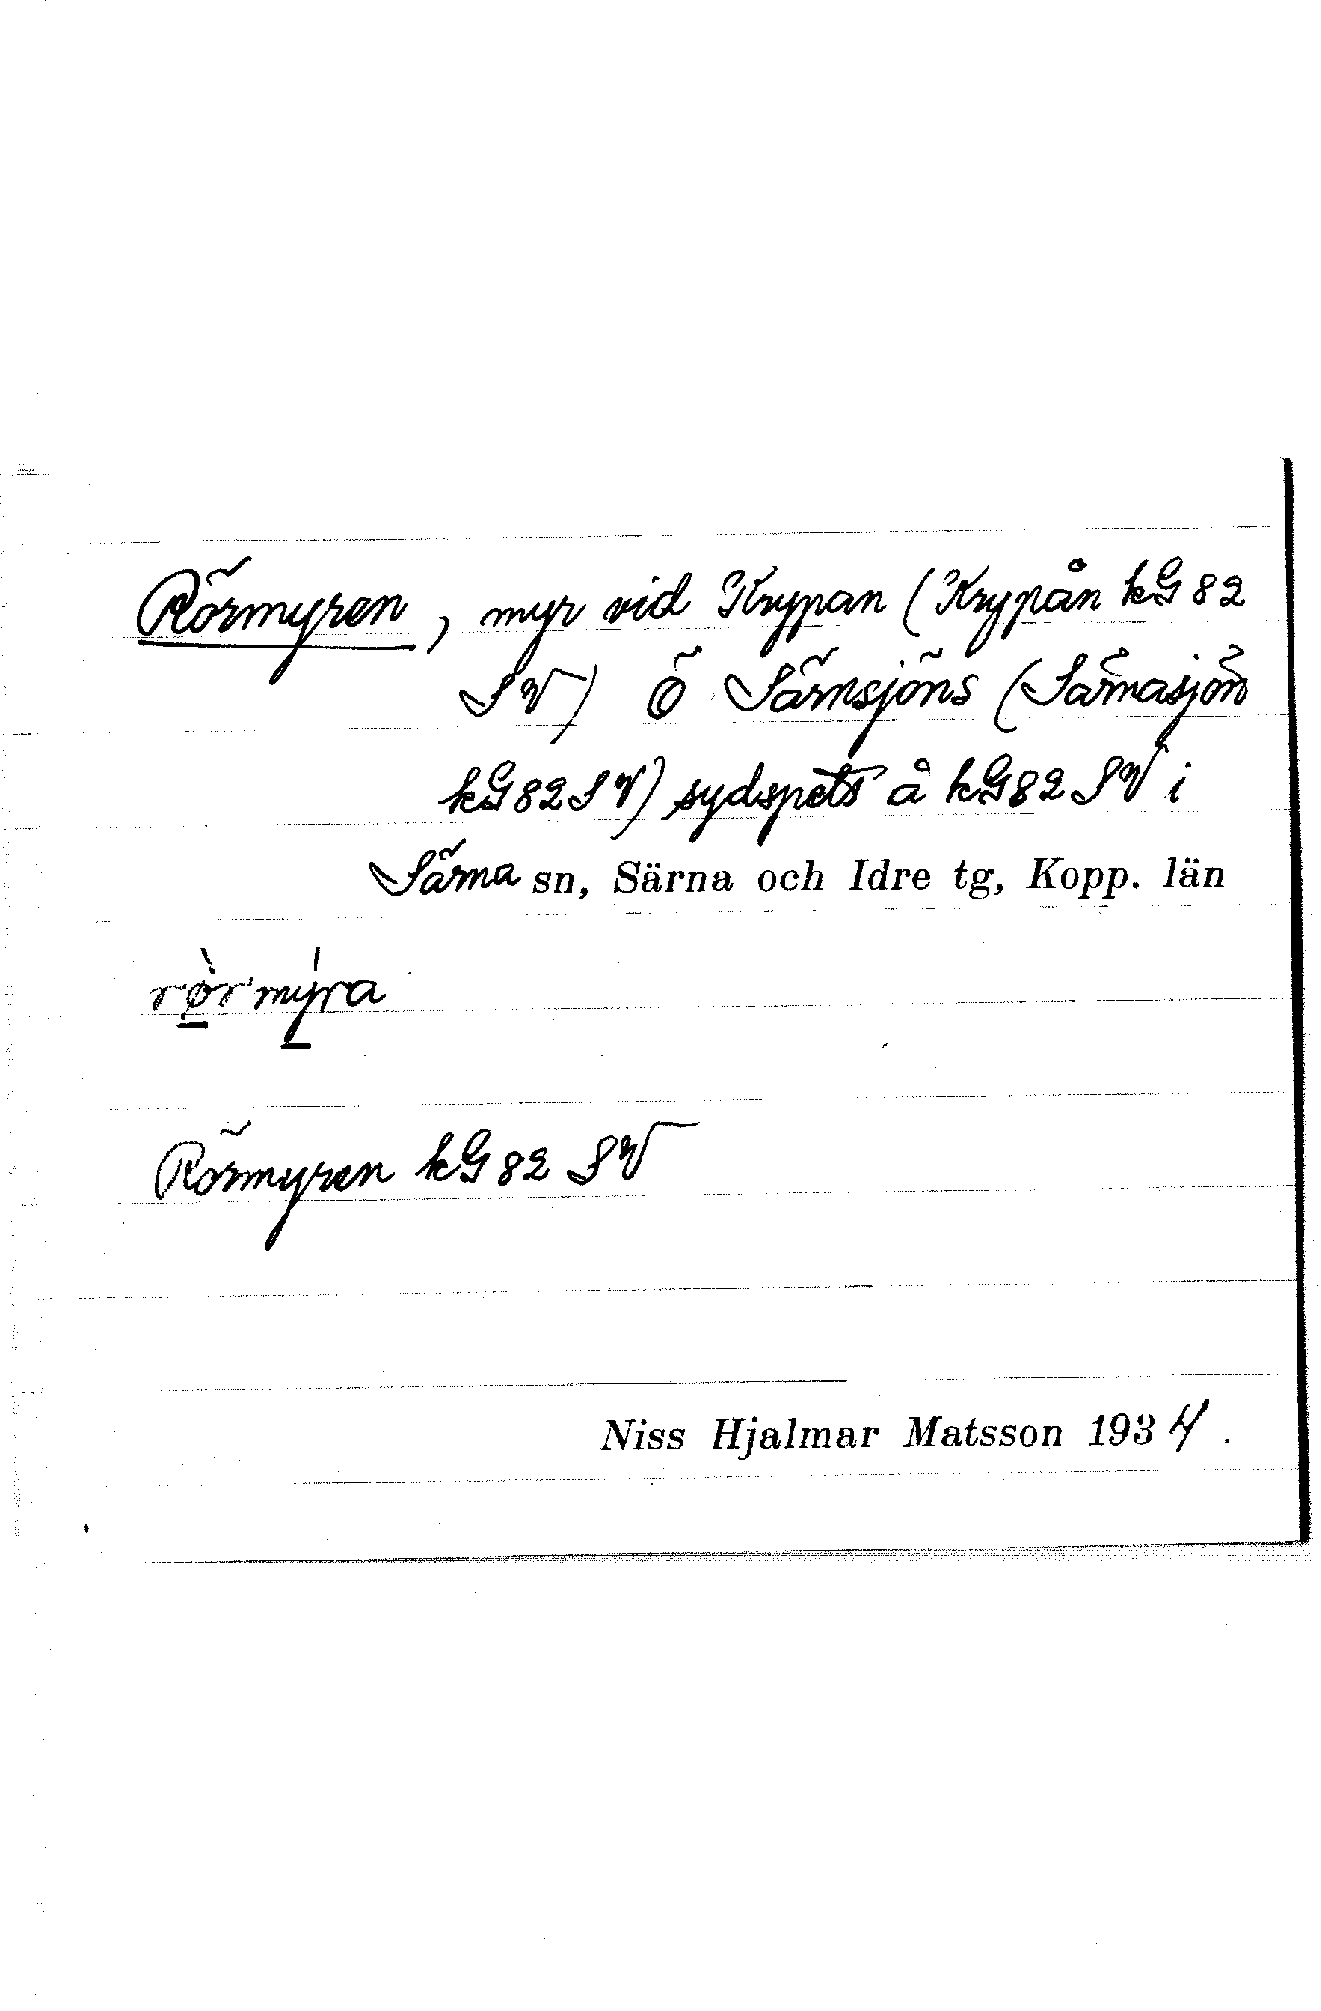 Rörmyren, myr vid Krypan (Krypån kG 82
SV) Ö Särnsjöns (Särnasjön
kG 82 SV) sydspets å kG 82 SV i
Särna sn, Särna och Idre tg, Kopp. län
rø̀rmýra
Rörmyren kG 82 SV
Niss Hjalmar Matsson 1934.